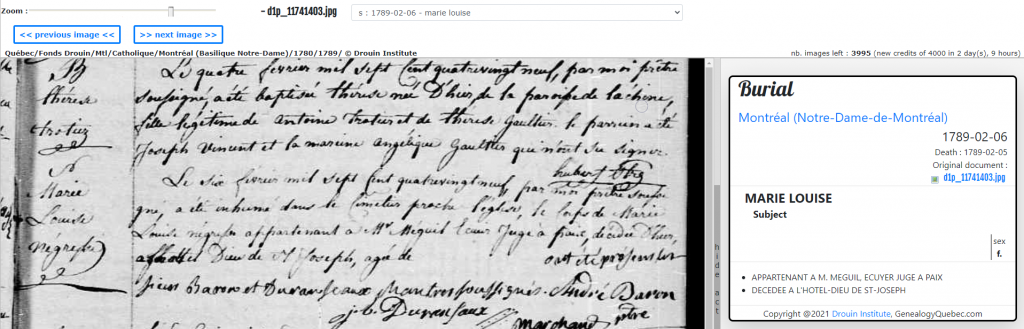 Zoom :
- d1p_11741403.jpg
s : 1789-02-06 - marie louise
<< previous image <<
>> next image >>
Québec/Fonds Drouin/Mtl/Catholique/Montréal (Basilique Notre-Dame)/1780/1789/ © Drouin Institute
nb. images left : 3995 (new credits of 4000 in 2 day(s), 9 hours)
B
thérése
trotier
Le quatre fevrier mil sept Cent quatrevingt neuf, par moi prêtre
soussigné, a été baptisée thérese née D'hier, de la paroisse de lachine,
fille légitime de antoine trotier et de therese Gaultier. le parrein a été
Joseph Vincent et la mareine angelique Gaultier qui n'ont su signer.
hubert
S
Marie
Louise
négresse
Le six fevrier mil sept Cent quatrevingt neuf, par moi prêtre soussi
gné, a été inhumé dans le Cimetier proche l'église, le Corps de Marie
Louise negresse appartenant a Mr. Meguil Ecuier Juge a paix, decedée D'hier,
a Dieu de St Joseph, agée de ont été présens les
sieurs Baron et Duranseaux Chantres soussignés. André Baron
j. b. Duransaux
Marchand ptre
hide
act
Burial
Montréal (Notre-Dame-de-Montréal)
1789-02-06
Death : 1789-02-05
Original document :
d1p_11741403.jpg
MARIE LOUISE
Subject
sex
f.
APPARTENANT A M. MEGUIL, ECUYER JUGE A PAIX
DECEDEE A L'HOTEL-DIEU DE ST-JOSEPH
Copyright @2021 Drouin Institute, GenealogyQuebec.com